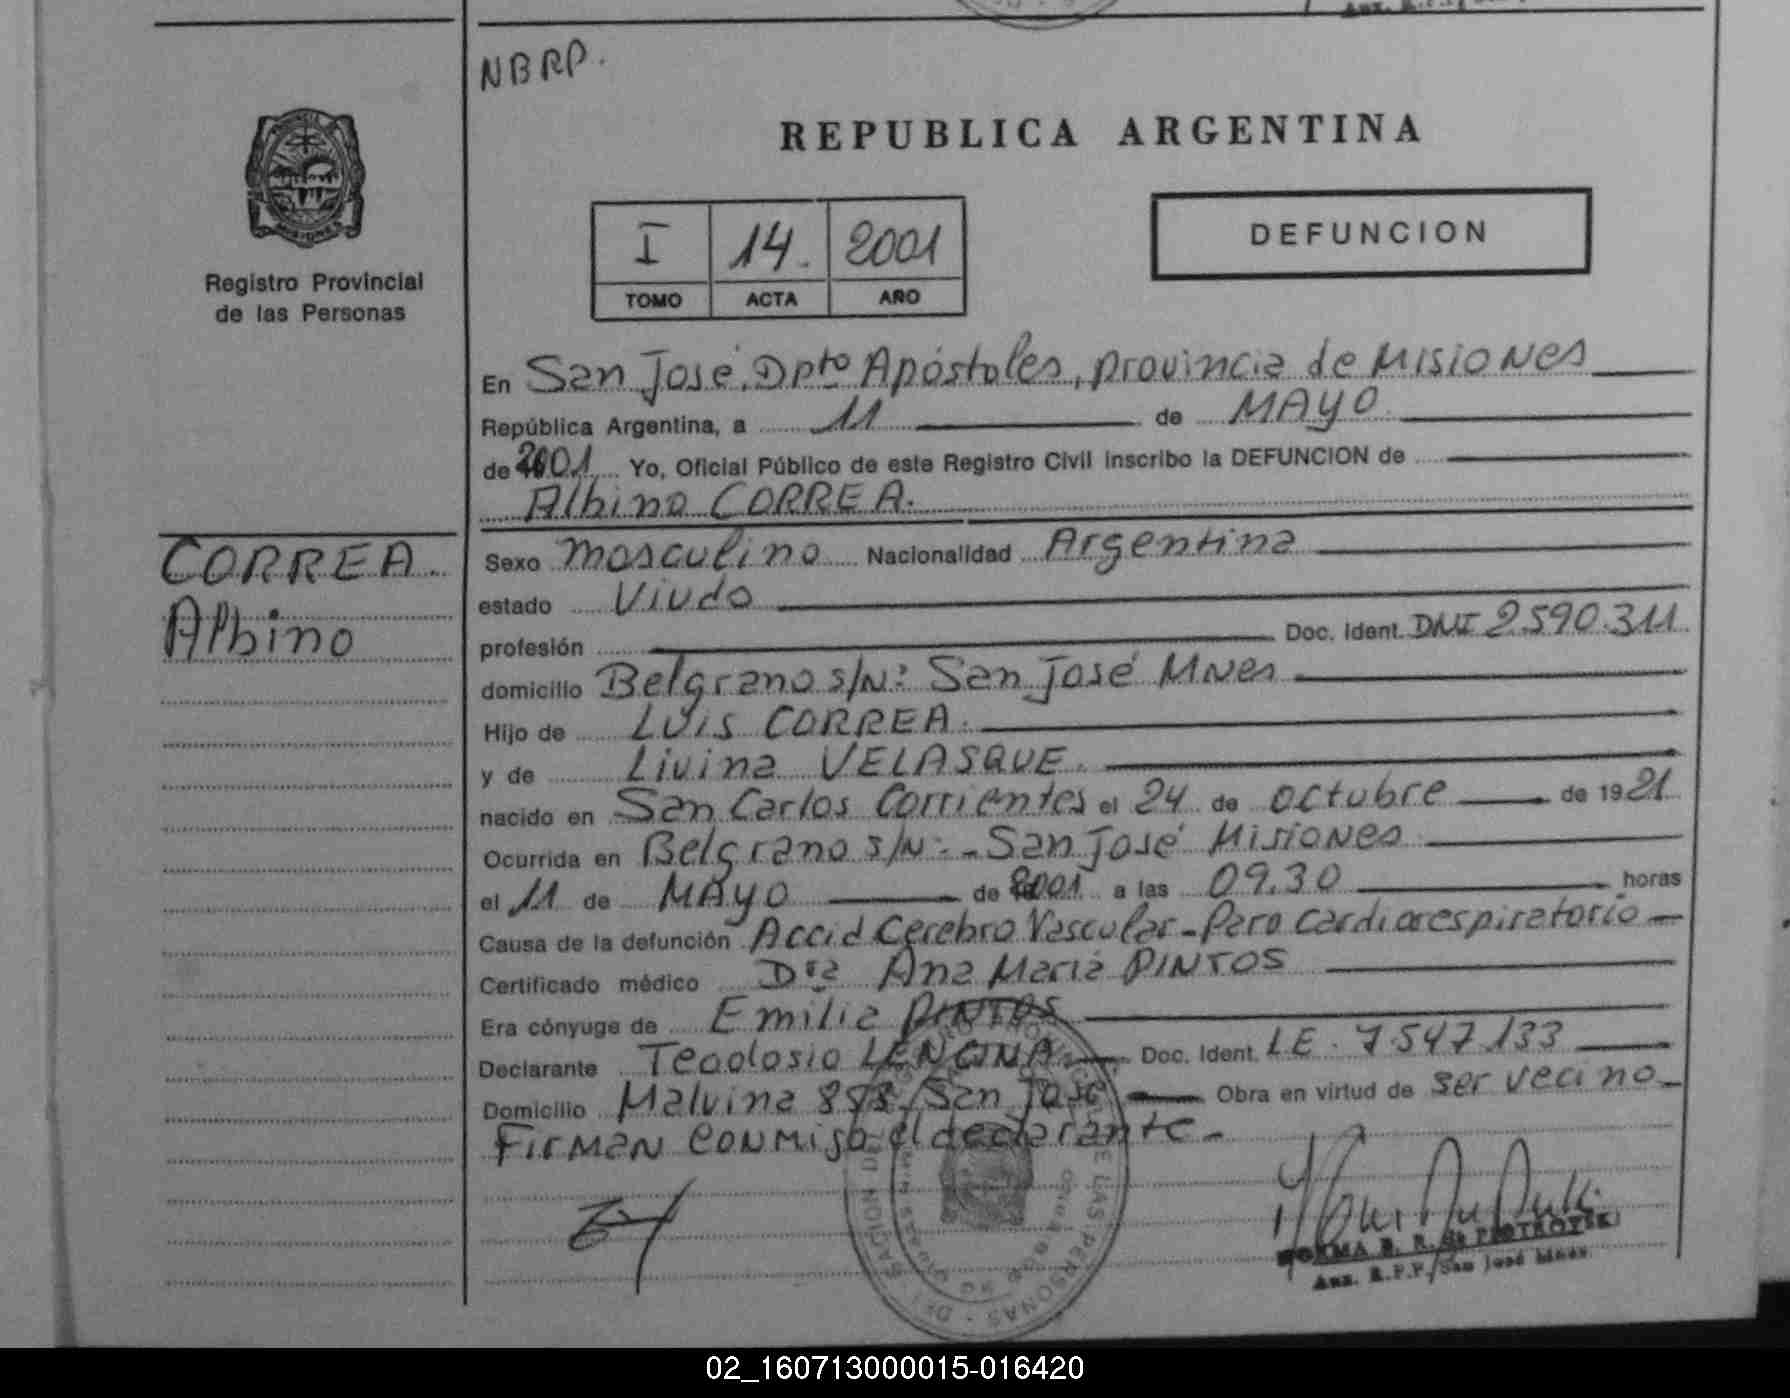 NBRP.
REPUBLICA ARGENTINA
Registro Provincial
de las Personas
I 14. 2001
TOMO ACTA AÑO
DEFUNCION
En San José, Dpto Apóstoles, provincia de Misiones
República Argentina, a 11 de MAYO
de 2001 Yo, Oficial Público de este Registro Civil inscribo la DEFUNCION de
Albino CORREA.
CORREA.
Albino
Sexo masculino Nacionalidad Argentina
estado Viudo
profesión Doc. Ident. DNI 2.590.311
domicilio Belgrano s/N: San José Mnes
Hijo de Luis CORREA.
y de Livina VELASQUE.
nacido en San Carlos Corrientes el 24 de octubre de 1921
Ocurrida en Belgrano s/N: - San José Misiones
el 11 de MAYO de 2001 a las 09.30 horas
Causa de la defunción Accid Cerebro Vascular - Paro cardiorespiratorio
Certificado médico Dra Ana Maria PINTOS
Era cónyuge de Emilia PINTOS
Declarante Teodosio LENCINA. Doc. Ident. LE. 7.547.133
Domicilio Malvina 858, San José Obra en virtud de ser vecino
Firman conmigo el declarante -
NORMA B. R. de PIOTROVSKI
Aux. R.P.P. San José Mnes.
02_160713000015-016420